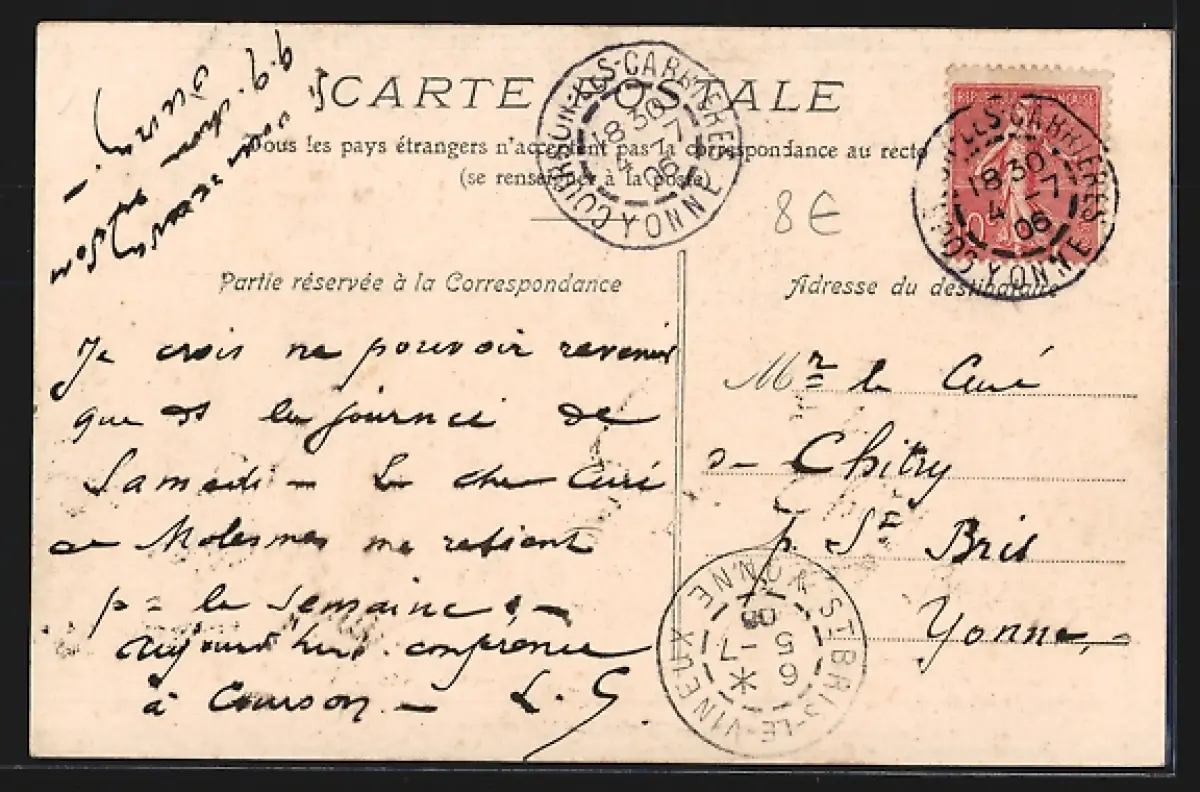 CARTE POSTALE
Tous les pays étrangers n'acceptent pas la correspondance au recto
(se renseigner à la poste)
8€
Partie réservée à la Correspondance
Adresse du destinataire
COURSON-LES-CARRIERES
18 30
4 -7
06
YONNE
COURSON-LES-CARRIERES
18 30
4 -7
06
YONNE
Je crois ne pouvoir revenir
que ds la journée de
Samedi - Le cher Curé
de Molesmes me retient
pr la semaine. -
aujourd'hui conférence
à Courson. - L. G.
Mr le Curé
de Chitry
p. St Bris
Yonne. -
ST BRIS-LE-VINEUX
6
5 -7
06
YONNE